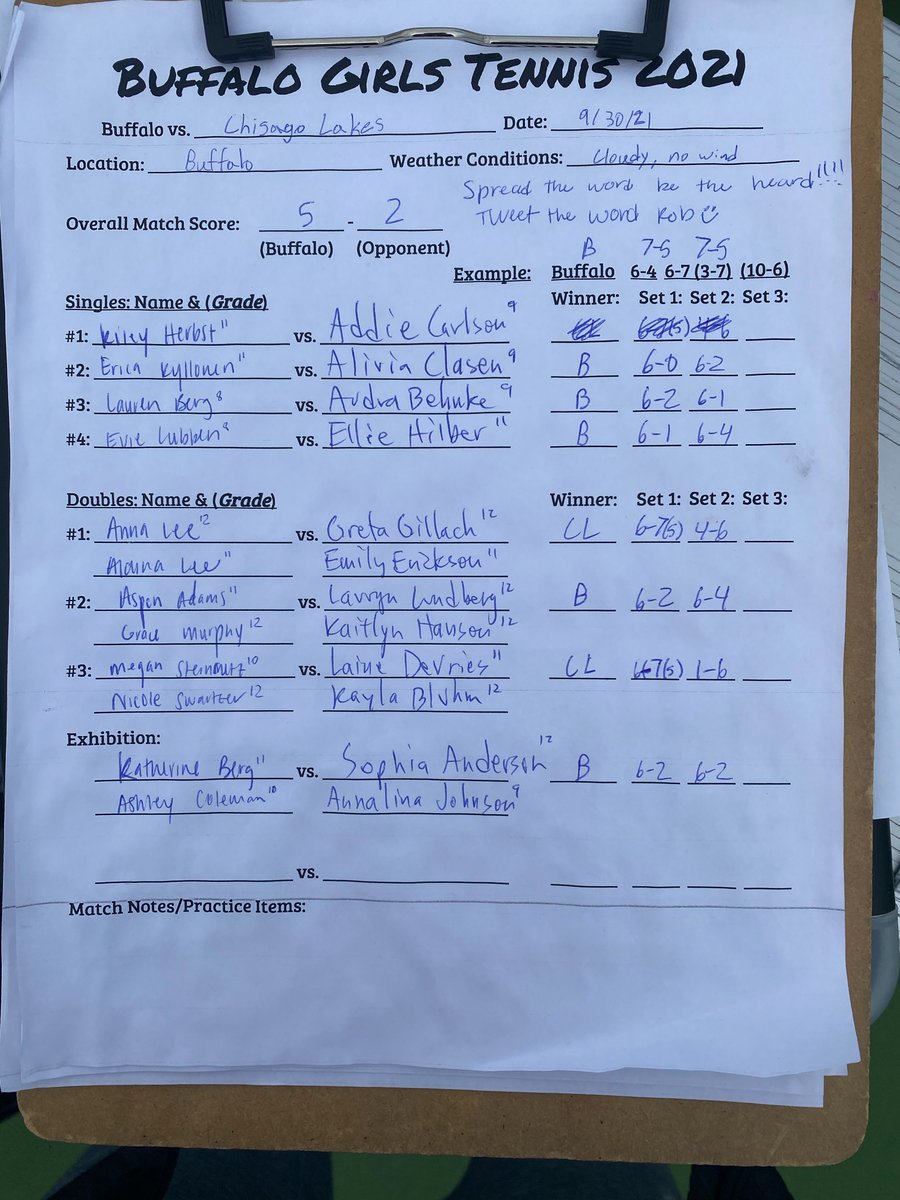 BUFFALO GIRLS TENNIS 2021
Buffalo vs. Chisago Lakes Date: 9/30/21
Location: Buffalo Weather Conditions: Cloudy, no wind
Spread the word be the heard!!!!
Overall Match Score: 5 - 2 Tweet the word Rob ☺
(Buffalo) (Opponent) B 7-5 7-5
Example: Buffalo 6-4 6-7 (3-7) (10-6)
Singles: Name & (Grade) Winner: Set 1: Set 2: Set 3:
#1: Kiley Herbst 11 vs. Addie Carlson 9
#2: Erica Kyllonen 11 vs. Alivia Clasen 9 B 6-0 6-2
#3: Lauren Berg 8 vs. Audra Behnke 9 B 6-2 6-1
#4: Evie Lubben vs. Ellie Hilber 11 B 6-1 6-4
Doubles: Name & (Grade) Winner: Set 1: Set 2: Set 3:
#1: Anna Lee 12 vs. Greta Gillach 12 CL 6-7(5) 4-6
Lee 11 Emily Erickson 11
#2: Aspen Adams 11 vs. Lauryn Lundberg 12 B 6-2 6-4
Grace Murphy 12 Kaitlyn Hanson 12
#3: Megan 10 vs. Laine DeVries 11 CL 6-7(5) 1-6
Nicole Swartzer 12 Kayla Bluhm 12
Exhibition:
Katherine Berg 11 vs. Sophia Anderson 12 B 6-2 6-2
Ashley Coleman 10 Annalina Johnson 9
vs.
Match Notes/Practice Items: